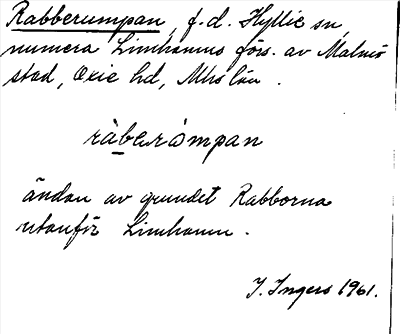 Rabberumpan, f.d. Hyllie sn,
numera Limhamns förs. av Malmö
stad, Oxie hd, Mhs län.
ràberòmpan
ändan av grundet Rabborna
utanför Limhamn.
I. Ingers 1961.